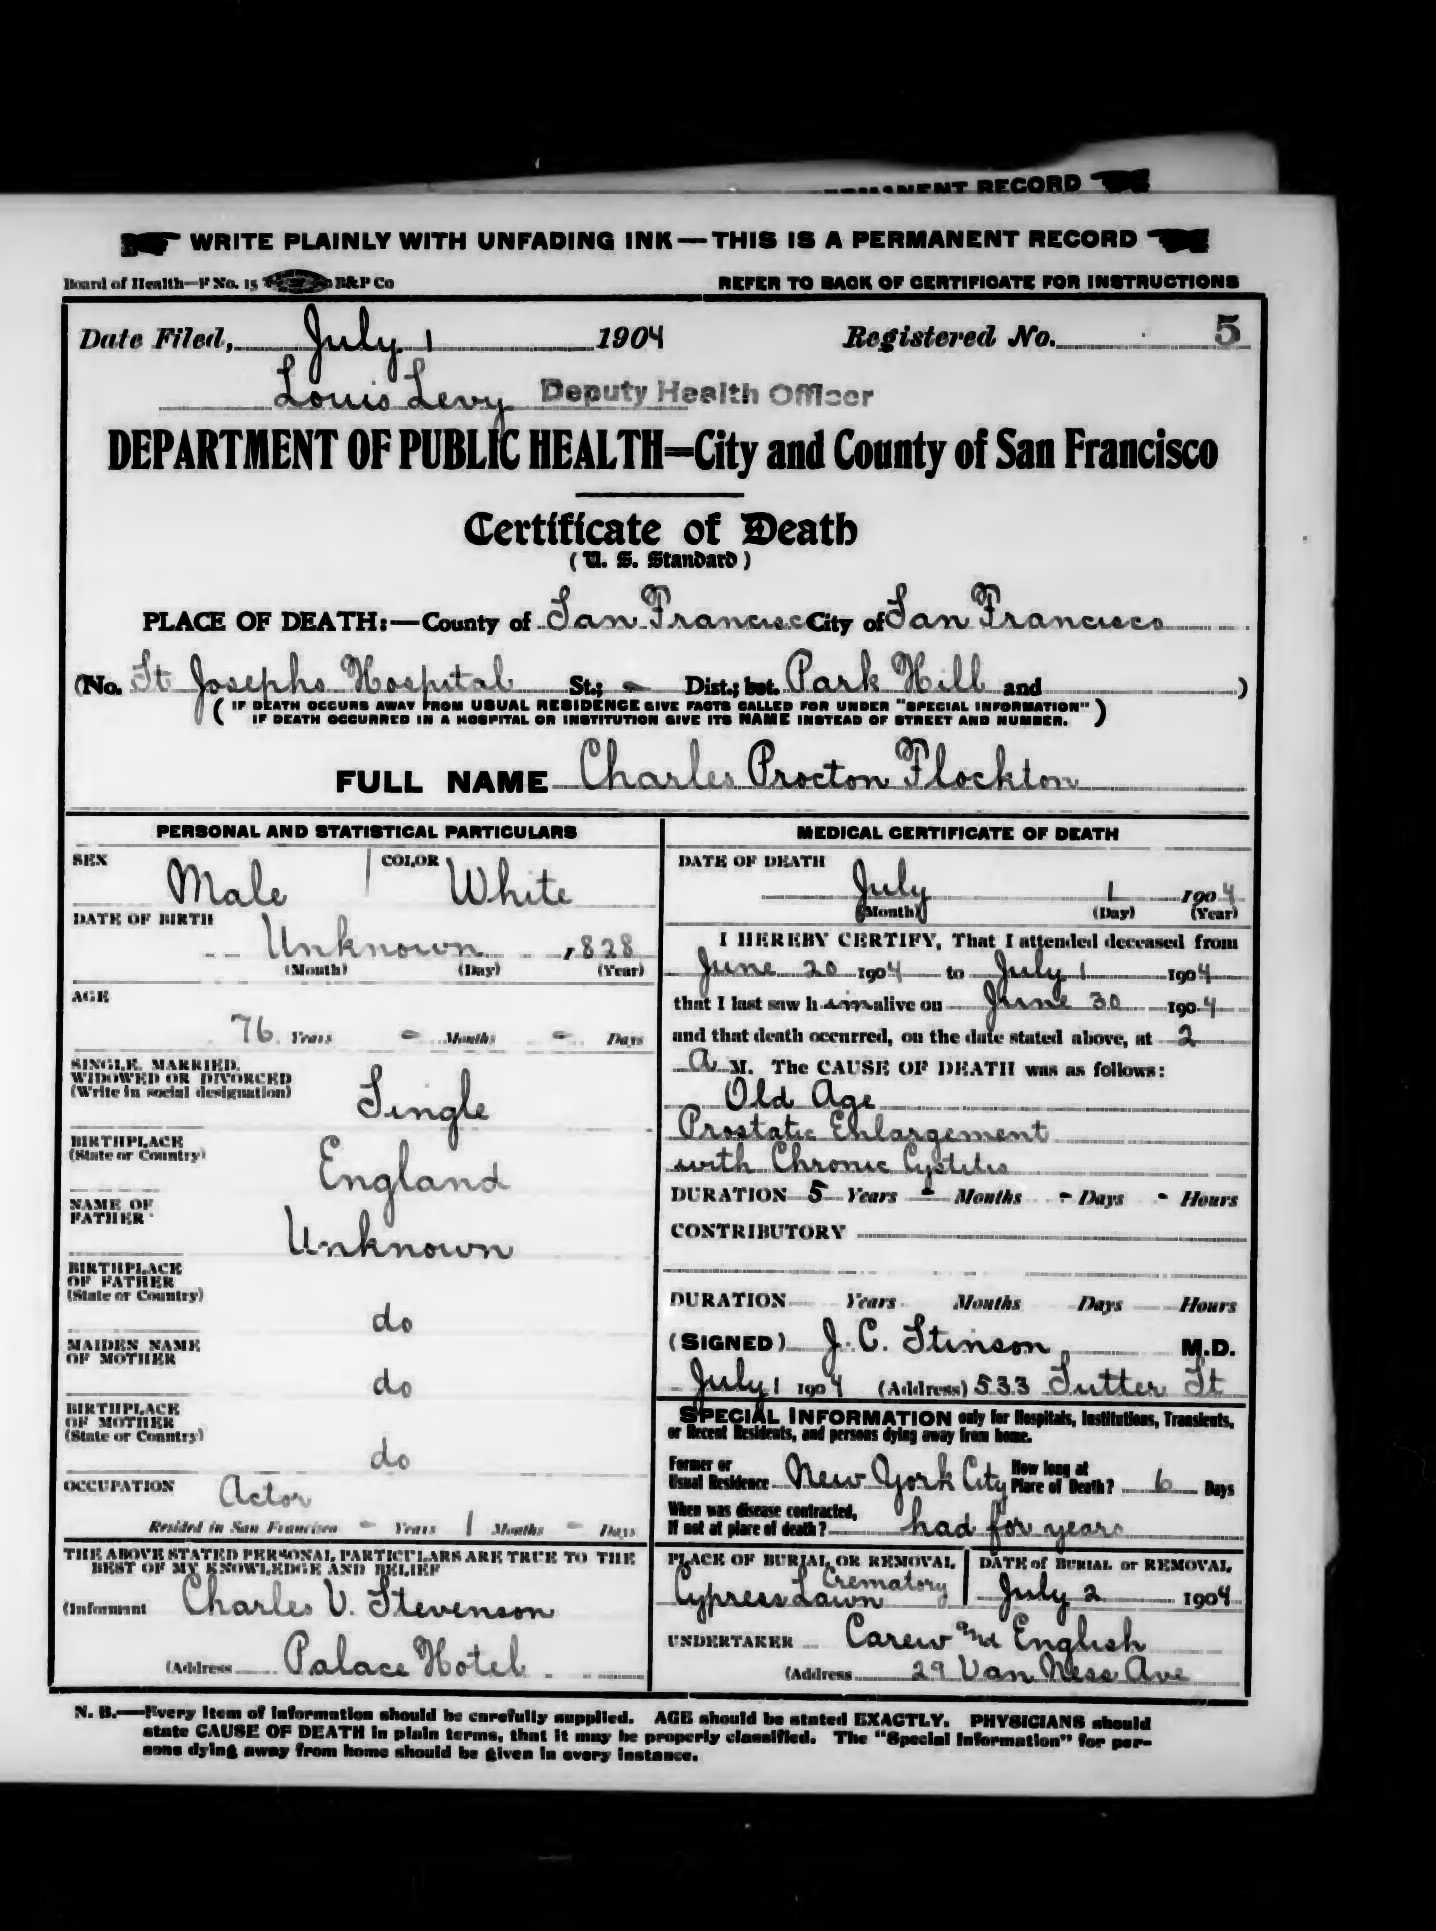 RMANENT RECORD
WRITE PLAINLY WITH UNFADING INK—THIS IS A PERMANENT RECORD
Board of Health—F No. 15 B&P Co REFER TO BACK OF CERTIFICATE FOR INSTRUCTIONS
Date Filed, July 1 1904 Registered No. 5
Louis Levy Deputy Health Officer
DEPARTMENT OF PUBLIC HEALTH=City and County of San Francisco
Certificate of Death
(U. S. Standard)
PLACE OF DEATH:—County of San Francisco City of San Francisco
(No. St Josephs Hospital St.; - Dist.; bet. Park Hill and )
( IF DEATH OCCURS AWAY FROM USUAL RESIDENCE GIVE FACTS CALLED FOR UNDER "SPECIAL INFORMATION"
IF DEATH OCCURRED IN A HOSPITAL OR INSTITUTION GIVE ITS NAME INSTEAD OF STREET AND NUMBER. )
FULL NAME Charles Procton Flockton
PERSONAL AND STATISTICAL PARTICULARS
SEX Male COLOR White
DATE OF BIRTH
Unknown , 1828
(Month) (Day) (Year)
AGE
76 Years - Months - Days
SINGLE, MARRIED,
WIDOWED OR DIVORCED
(Write in social designation) Single
BIRTHPLACE
(State or Country) England
NAME OF
FATHER Unknown
BIRTHPLACE
OF FATHER
(State or Country) do
MAIDEN NAME
OF MOTHER do
BIRTHPLACE
OF MOTHER
(State or Country) do
OCCUPATION Actor
Resided in San Francisco - Years 1 Months - Days
THE ABOVE STATED PERSONAL PARTICULARS ARE TRUE TO THE
BEST OF MY KNOWLEDGE AND BELIEF
(Informant Charles V. Stevenson
(Address Palace Hotel
MEDICAL CERTIFICATE OF DEATH
DATE OF DEATH
July 1 1904
(Month) (Day) (Year)
I HEREBY CERTIFY, That I attended deceased from
June 20 1904 to July 1 1904
that I last saw him alive on June 30 1904
and that death occurred, on the date stated above, at 2
A M. The CAUSE OF DEATH was as follows:
Old Age
Prostatic Enlargement
with Chronic Cystitis
DURATION 5 Years - Months - Days - Hours
CONTRIBUTORY
DURATION Years Months Days Hours
(SIGNED) J. C. Stinson M.D.
July 1 1904 (Address) 533 Sutter St
SPECIAL INFORMATION only for Hospitals, Institutions, Transients,
or Recent Residents, and persons dying away from home.
Former or
Usual Residence New York City How long at
Place of Death? 6 Days
When was disease contracted,
If not at place of death? had for years
PLACE OF BURIAL OR REMOVAL
Cypress Lawn Crematory
DATE of BURIAL or REMOVAL
July 2 1904
UNDERTAKER Carew and English
(Address 29 Van Ness Ave
N. B.—Every item of information should be carefully supplied. AGE should be stated EXACTLY. PHYSICIANS should
state CAUSE OF DEATH in plain terms, that it may be properly classified. The "Special Information" for per-
sons dying away from home should be given in every instance.